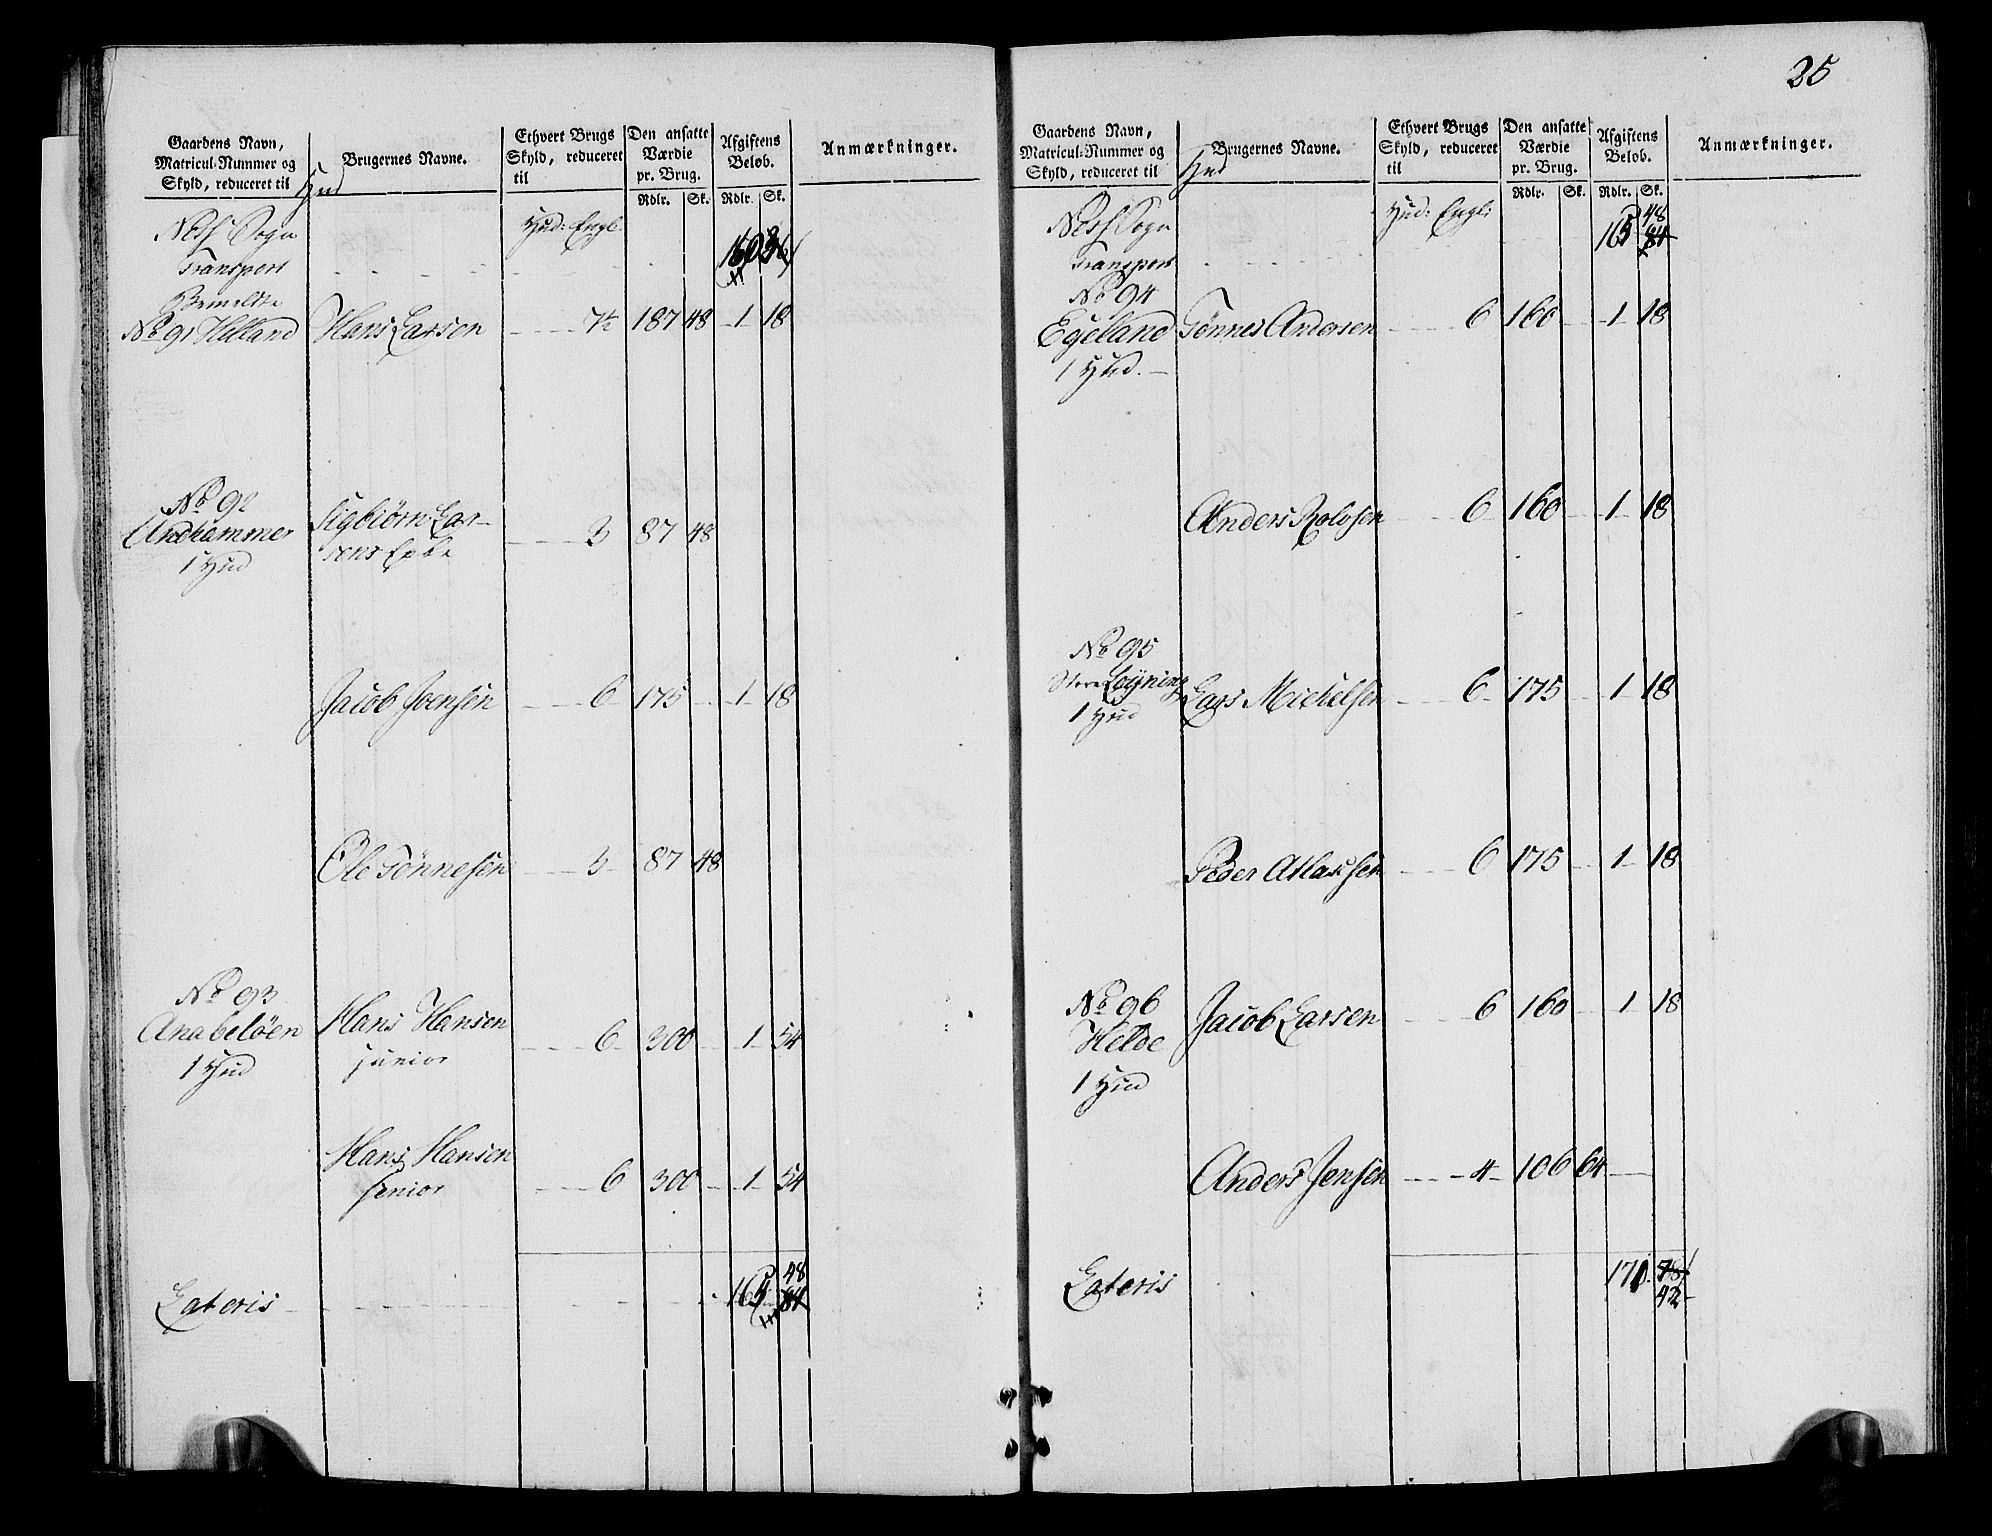 Gaardens Navn,
Matricul-Nummer og
Skyld, reduceret til
Hud
Brugernes Navne.
Ethvert Brugs
Skyld, reduceret
til
Den ansatte
Værdie
pr. Brug.
Rdlr. Sk.
Afgiftens
Beløb.
Rdlr. Sk.
Anmærkninger.
Hud: Engl.
Ness Sogn
Transport
Bemeldte
No 91 Helland Hans Larsen 7½ 187 48 1 18
No 92
Andhammer Sigbiørn Lar-
1 Hud sens Enke 3 87 48
Jacob Joensen 6 175 1 18
Ole Tønnesen 3 87 48
No 93
Anabeløen Hans Hansen
1 Hud junior 6 300 1 54
Hans Hansen
senior 6 300 1 54
Lateris 165 48
84
25
Gaardens Navn,
Matricul-Nummer og
Skyld, reduceret til
Hud
Brugernes Navne.
Ethvert Brugs
Skyld, reduceret
til
Den ansatte
Værdie
pr. Brug.
Rdlr. Sk.
Afgiftens
Beløb.
Rdlr. Sk.
Anmærkninger.
Hud: Engl:
Ness Sogn 165 48
Transport 84
No 94
Egeland Tønnes Andersen 6 160 1 18
1 Hud.
Anders Rolvsen 6 160 1 18
No 95
Store Løyning Lars Michelsen 6 175 1 18
1 Hud
Peder Atlaksen 6 175 1 18
No 96
Helde Jacob Larsen 6 160 1 18
1 Hud
Anders Jensen 4 106 64
Lateris 171 78
42